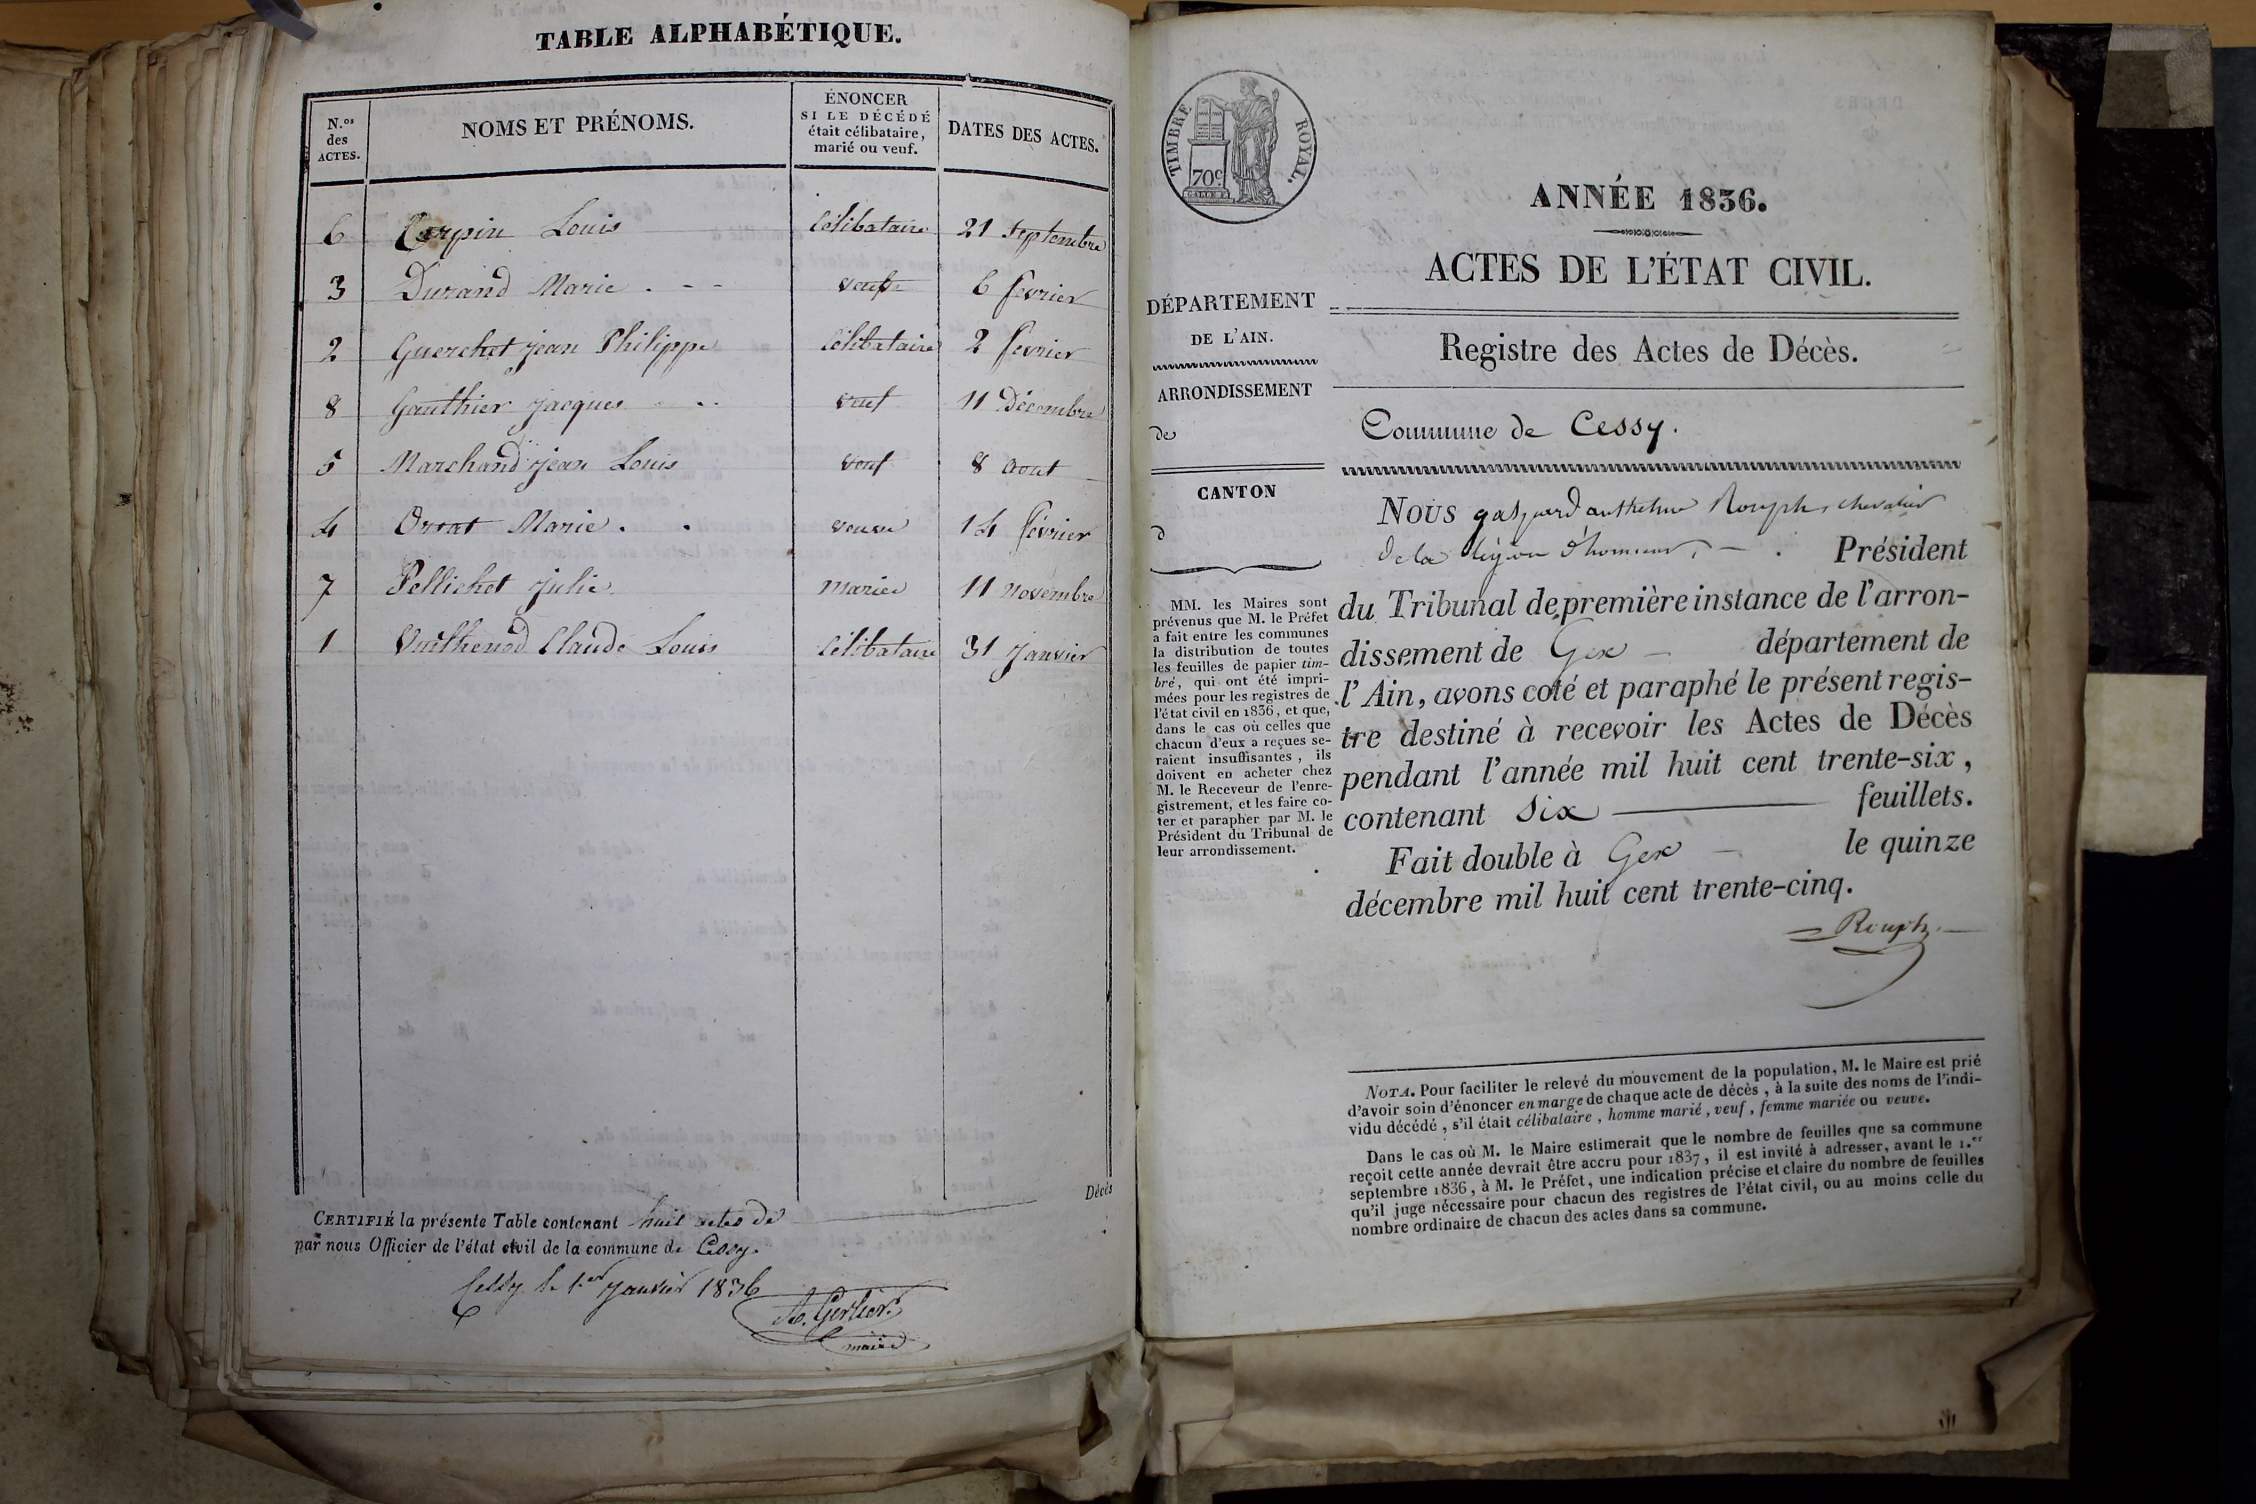 TABLE ALPHABÉTIQUE.
N.os des ACTES.
NOMS ET PRÉNOMS.
ÉNONCER
SI LE DÉCÉDÉ
était célibataire,
marié ou veuf.
DATES DES ACTES.
6 Carpin Louis Célibataire 21 Septembre
3 Durand Marie . - - 6 février
2 Guerchet jean Philippe Célibataire 2 février
8 Gauthier jacques veuf 11 Décembre
5 Marchand jean Louis veuf 8 Aout
4 Orsat Marie . . veuve 14 février
7 Pellichet julie mariée 11 novembre
1 Vuilhenod Claude Louis Célibataire 31 janvier
Décès
CERTIFIÉ la présente Table contenant huit actes de
par nous Officier de l'état civil de la commune de Cessy.
Cessy le 1.er janvier 1836
Gerlier
maire
TIMBRE ROYAL.
70c
ANNÉE 1836.
ACTES DE L'ÉTAT CIVIL.
DÉPARTEMENT
DE L'AIN.
ARRONDISSEMENT
de
CANTON
d
MM. les Maires sont
prévenus que M. le Préfet
a fait entre les communes
la distribution de toutes
les feuilles de papier tim-
bré, qui ont été impri-
mées pour les registres de
l'état civil en 1836, et que,
dans le cas où celles que
chacun d'eux a reçues se-
raient insuffisantes, ils
doivent en acheter chez
M. le Receveur de l'enre-
gistrement, et les faire co-
ter et parapher par M. le
Président du Tribunal de
leur arrondissement.
Registre des Actes de Décès.
Commune de Cessy.
Nous gaspard anthelme Rouph, chevalier
de la légion d'honneur, Président
du Tribunal de première instance de l'arron-
dissement de Gex département de
l'Ain, avons coté et paraphé le présent regis-
tre destiné à recevoir les Actes de Décès
pendant l'année mil huit cent trente-six,
contenant six feuillets.
Fait double à Gex le quinze
décembre mil huit cent trente-cinq.
Rouph
NOTA. Pour faciliter le relevé du mouvement de la population, M. le Maire est prié
d'avoir soin d'énoncer en marge de chaque acte de décès, à la suite des noms de l'indi-
vidu décédé, s'il était célibataire, homme marié, veuf, femme mariée ou veuve.
Dans le cas où M. le Maire estimerait que le nombre de feuilles que sa commune
reçoit cette année devrait être accru pour 1837, il est invité à adresser, avant le 1.er
septembre 1836, à M. le Préfet, une indication précise et claire du nombre de feuilles
qu'il juge nécessaire pour chacun des registres de l'état civil, ou au moins celle du
nombre ordinaire de chacun des actes dans sa commune.